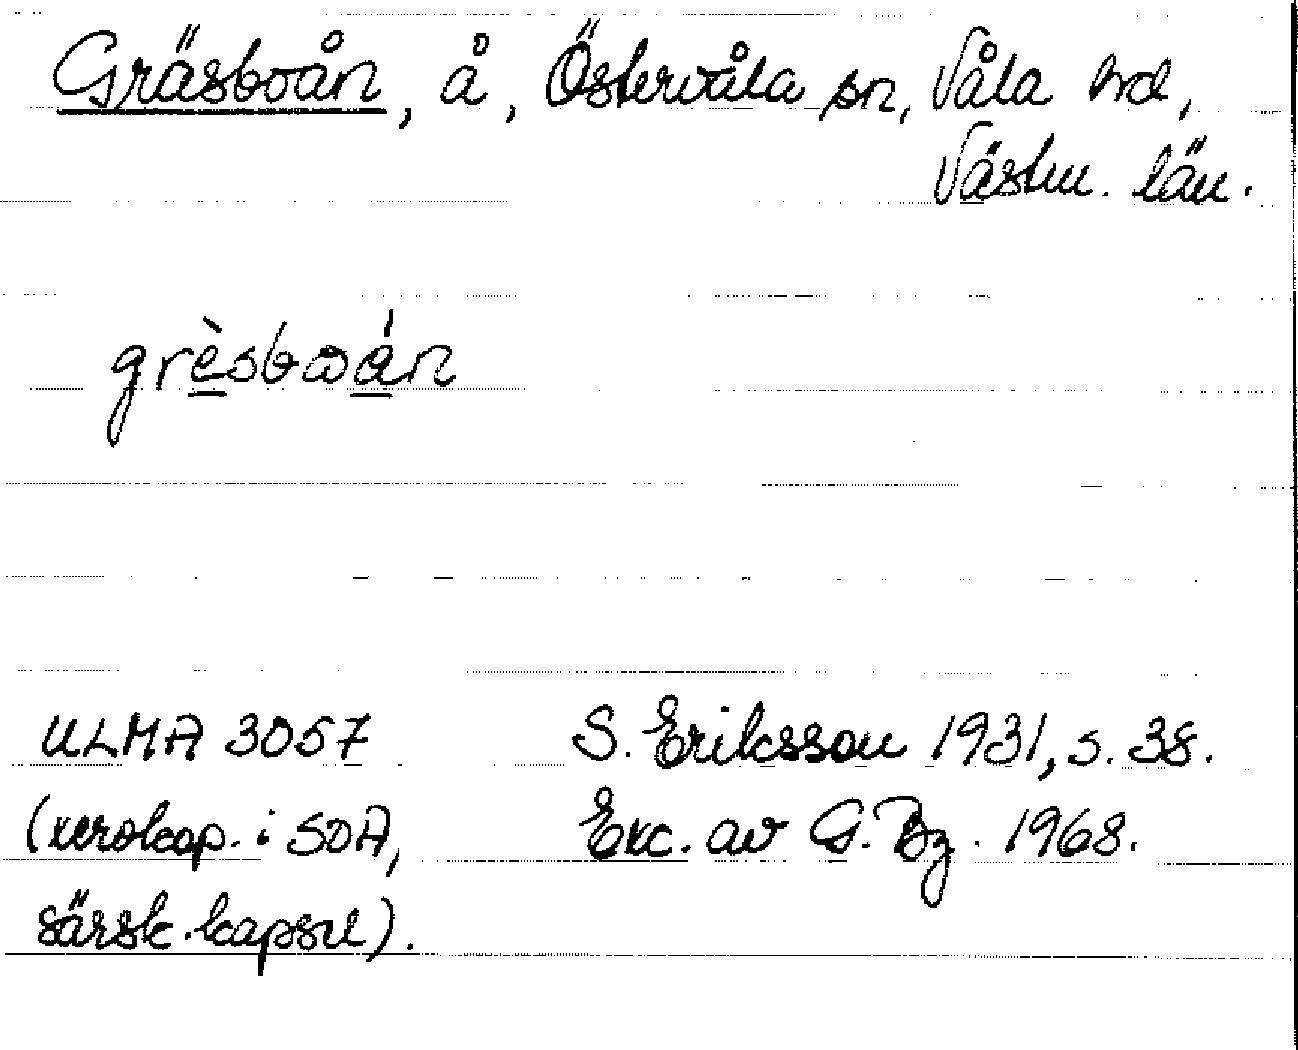 Gräsboån, å, Östervåla sn, Våla hd,
Västm. län.
grèsbωán
ULMA 3057 S. Eriksson 1931, s. 38.
(xerokop. i SOA, Exc. av G. Bz. 1968.
särsk. kapsel).